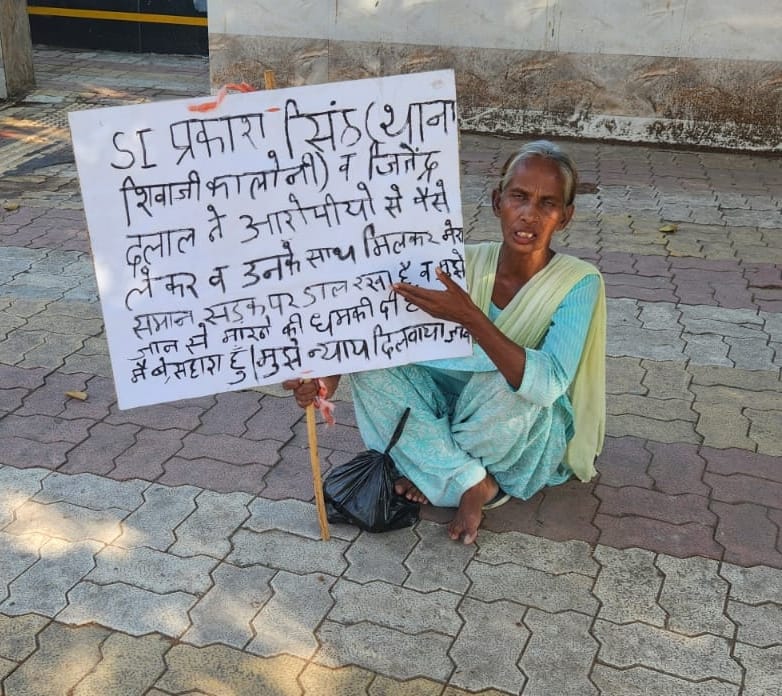 SI प्रकाश सिंह (थाना
शिवाजी कालोनी) व जितेंद्र
दलाल ने आरोपीयो से पैसे
लेकर व उनके साथ मिलकर मेरा
समान सड़क पर डाल रखा है, व मुझे
जान से मारने की धमकी दी है
मै बेसहारा हुँ। मुझे न्याय दिलवाया जाव